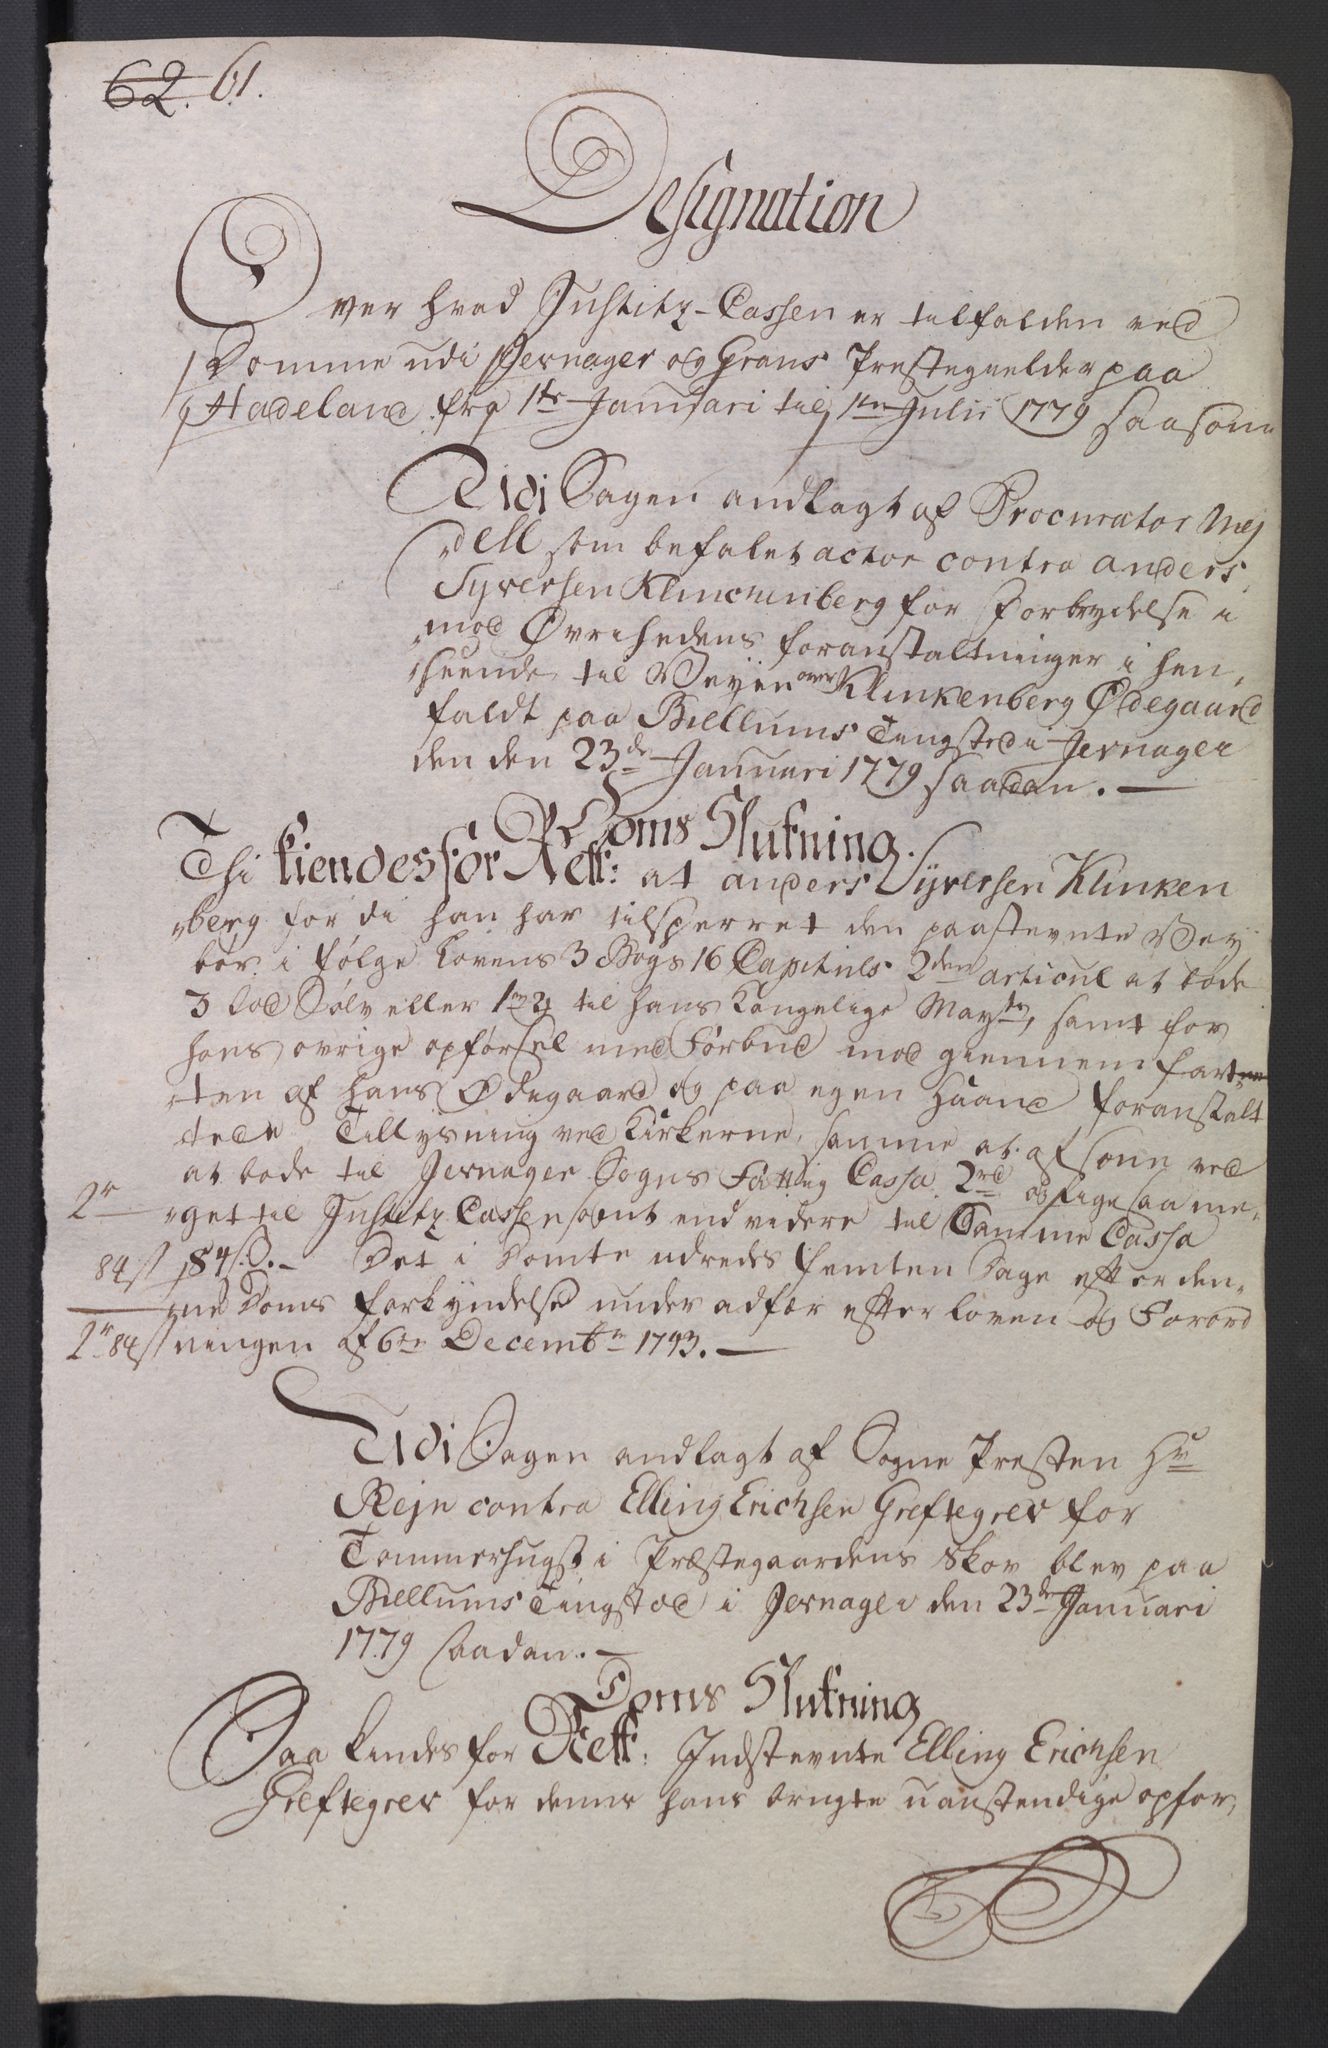 62. 61.
Designation
Over hvad Justitz-Cassen er tilfalden ved
Domme udi Jevnager og Grans Prestegielder paa
Hadeland fra 1te Januari til 1ten Julii 1779 saasom
Udi Sagen andlagt af Procurator Mej
dell som befalet actor contra Anders
Syversen Klinckenberg for Forbrydelse i
mod Øvrihedens foranstaltninger i hen,
seende til Veyen over Klinkenberg Ødegaard
faldt paa Biellums Tingsted i Jevnager
den den 23de Januari 1779 saadan. —
Doms Slutning.
Thi kiendes for Rett: at Anders Syversen Klinken
berg for di han har tilsperret den paastevnte Vey
bør i følge Lovens 3 Bogs 16 Capituls 2den articul at bøde
3 Lod Sølv eller til hans Kongelige Mayts, samt for
hans øvrige opførsel med Forbud mod giennem fart
ten af hans Ødegaard og paa egen Haand foranstalt
tede Tillysning ved Kirkerne, samme at afsone ved
at bøde til Jevnager Sogns Fattig Cassa 2rd og lige saa me,
2r get til Justitz Cassen samt end videre til Samme Cassa
84s 84s. Det i Domte udredes femten Dage efter den,
ne Doms forkyndelse under adfær efter loven og Forord
2r 84s ningen af 6te Decembr 1743. —
Udi Sagen andlagt af Sogne Presten Hr
Rejn contra Elling Erichsen Greftegrev for
Tømmerhugst i Præstegaardens Skov blev paa
Biellums Tingsted i Jevnager den 23de Januari
1779 saadan. —
Doms Slutning
Saa kiendes for Rett: Indstevnte Elling Erichsen
Greftegrev for denne hans brugte uanstendige opfør,